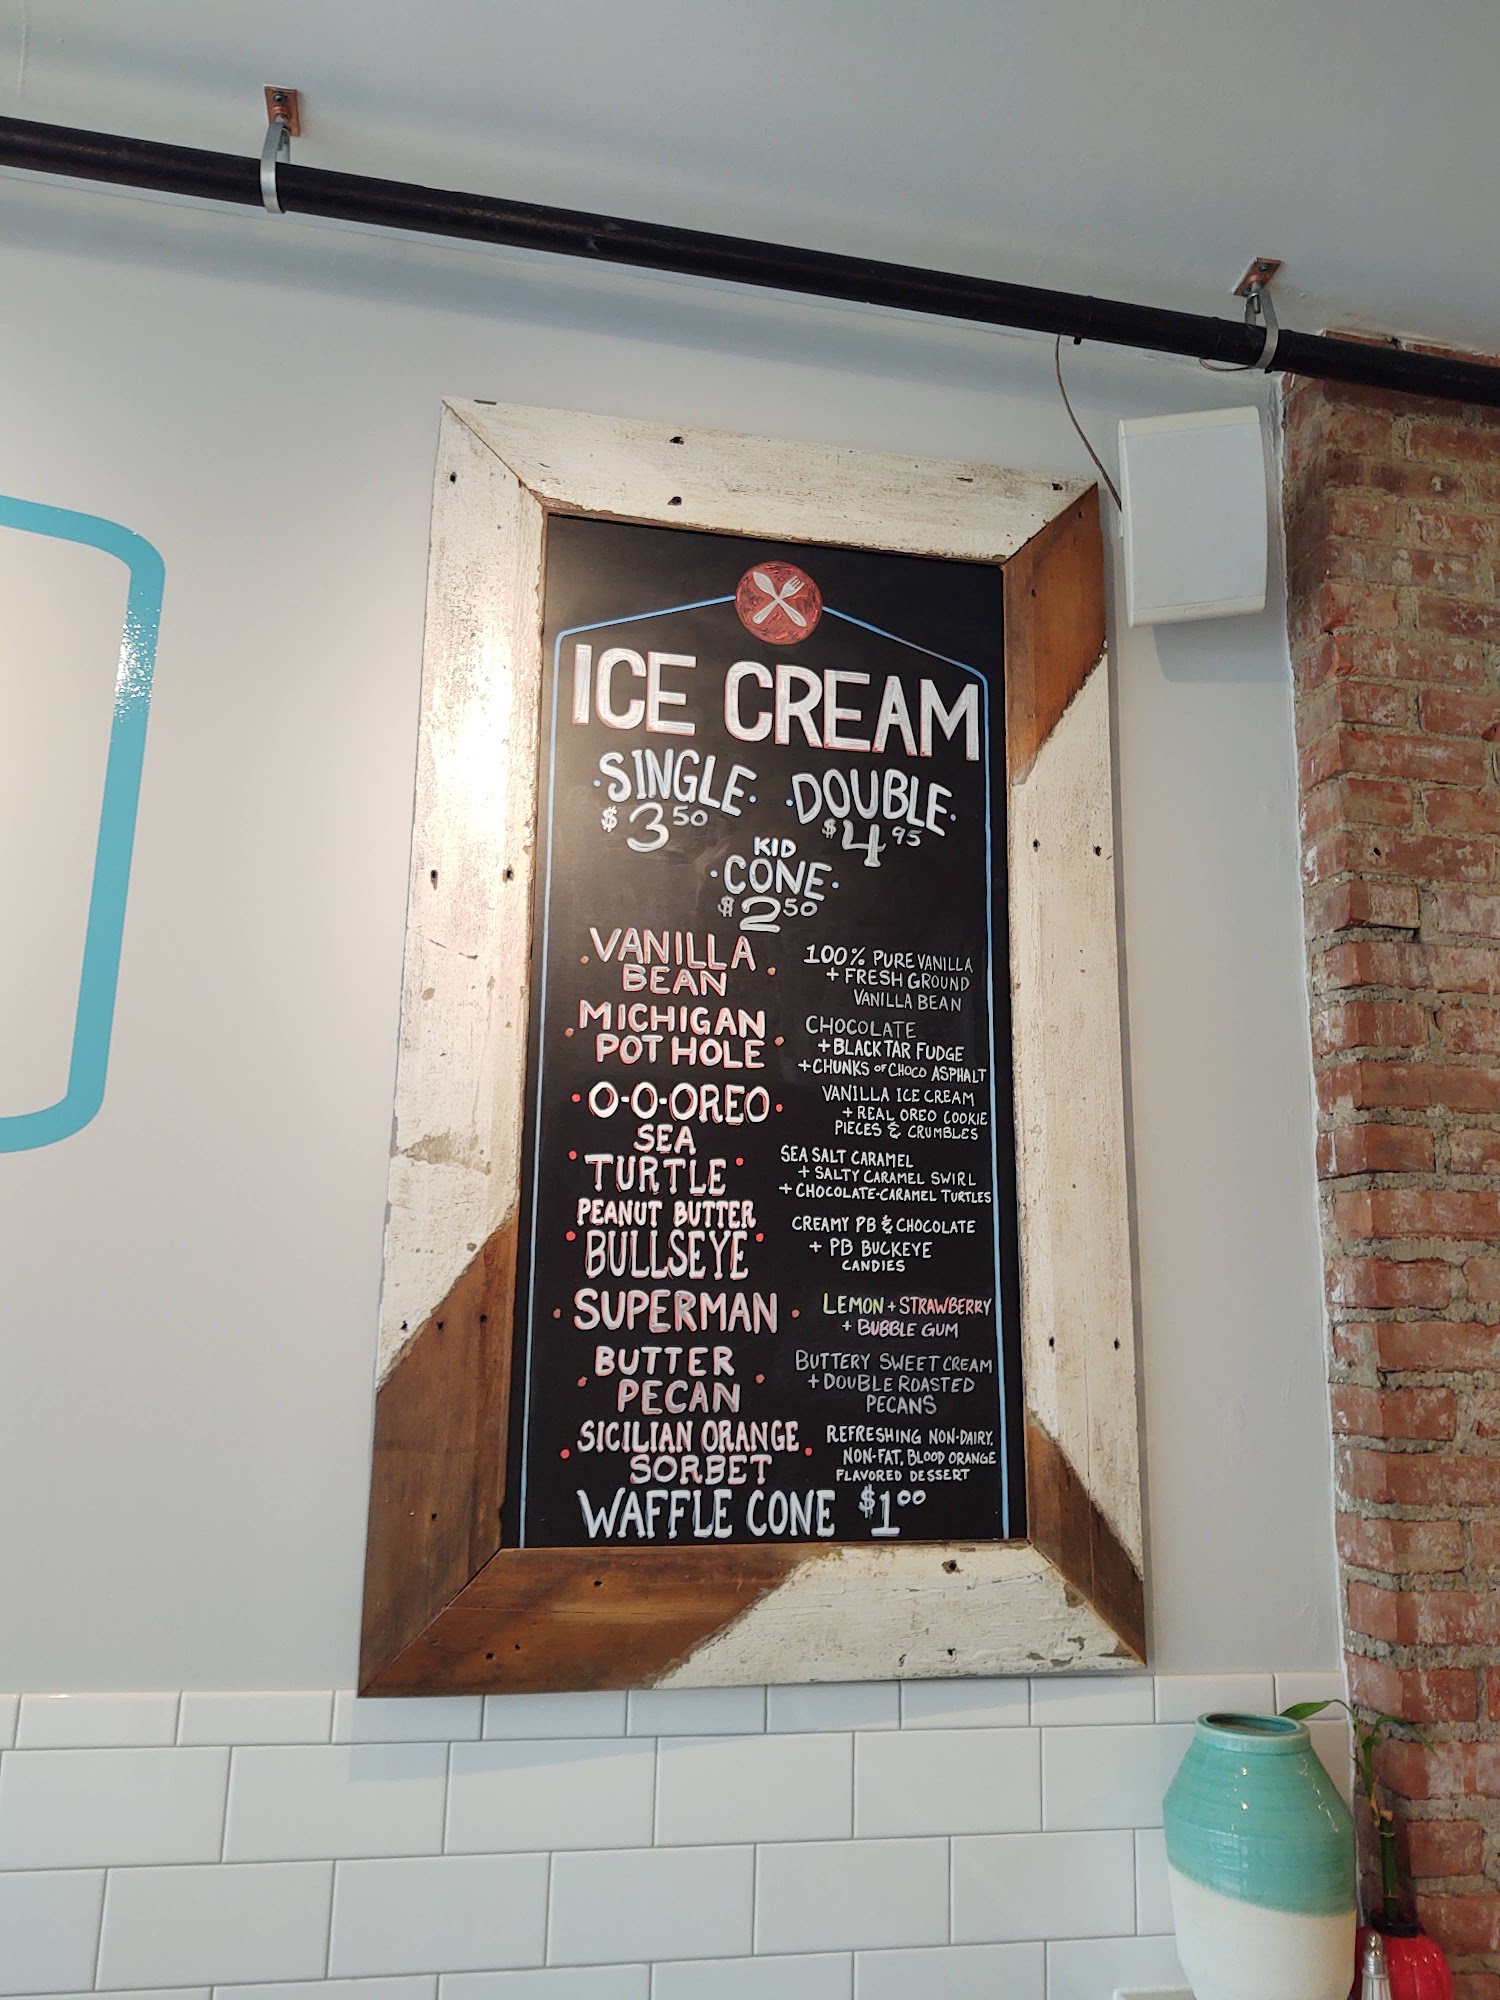 ICE CREAM
SINGLE DOUBLE
$3.50 $4.95
KID
CONE
$2.50
VANILLA
BEAN
100% PURE VANILLA
+ FRESH GROUND
VANILLA BEAN
MICHIGAN
POT HOLE
CHOCOLATE
+ BLACK TAR FUDGE
+ CHUNKS OF CHOCO ASPHALT
O-O-OREO
VANILLA ICE CREAM
+ REAL OREO COOKIE
PIECES & CRUMBLES
SEA
TURTLE
SEA SALT CARAMEL
+ SALTY CARAMEL SWIRL
+ CHOCOLATE-CARAMEL TURTLES
PEANUT BUTTER
BULLSEYE
CREAMY PB & CHOCOLATE
+ PB BUCKEYE
CANDIES
SUPERMAN
LEMON + STRAWBERRY
+ BUBBLE GUM
BUTTER
PECAN
BUTTERY SWEET CREAM
+ DOUBLE ROASTED
PECANS
SICILIAN ORANGE
SORBET
REFRESHING NON-DAIRY,
NON-FAT, BLOOD ORANGE
FLAVORED DESSERT
WAFFLE CONE $1.00